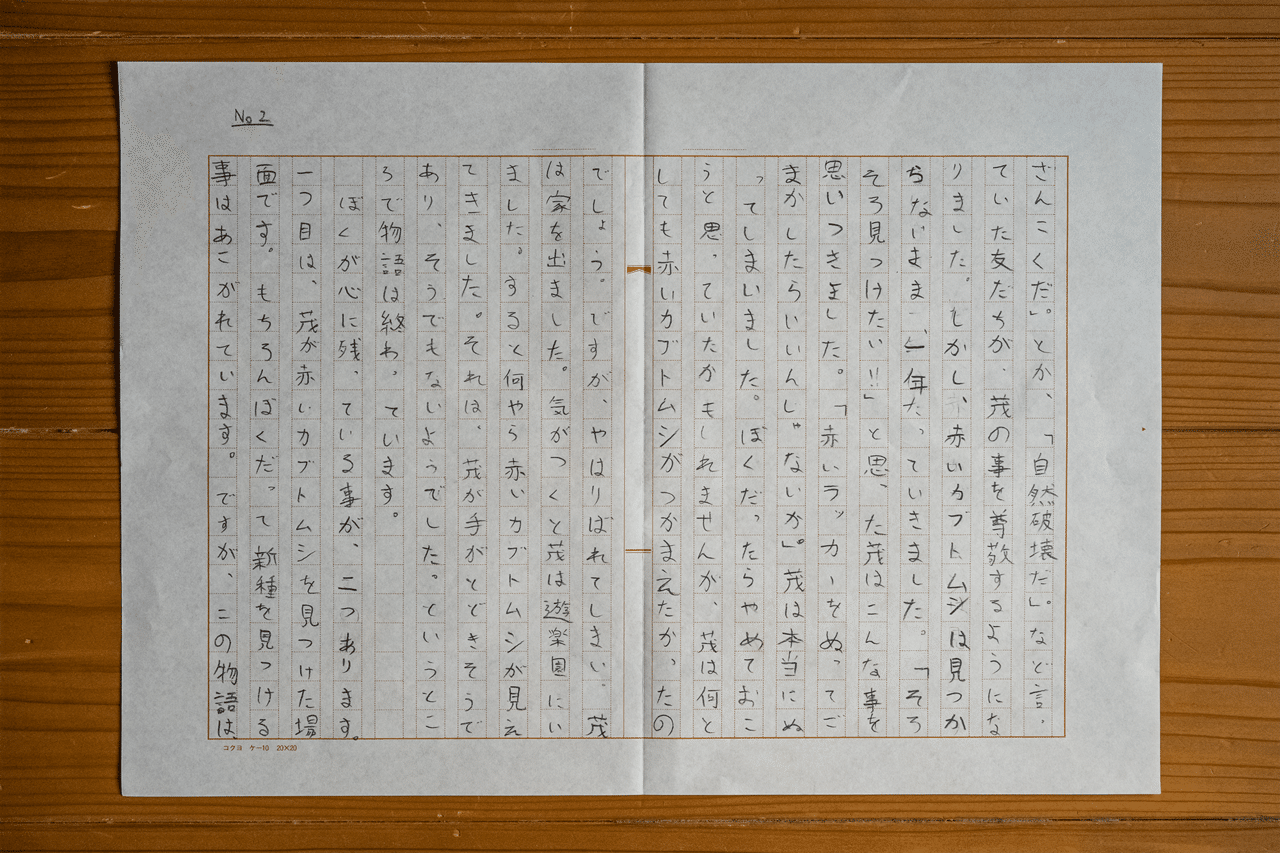 No2
ざんこくだ」。とか、「自然破壊だ」。など言っ
ていた友だちが、茂の事を尊敬するようにな
りました。しかし、赤いカブトムシは見つか
らないまま、一年たっていきました。「そろ
そろ見つけたい!!」と思った茂はこんな事を
思いつきました。「赤いラッカーをぬってご
まかしたらいいんじゃないか」。茂は本当にぬ
ってしまいました。ぼくだったらやめておこ
うと思っていたかもしれませんが、茂は何と
しても赤いカブトムシがつかまえたかったの
でしょう。ですが、やはりばれてしまい、茂
は家を出ました。気がつくと茂は遊楽園にい
ました。すると何やら赤いカブトムシが見え
てきました。それは、茂が手がとどきそうで
あり、そうでもないようでした。というとこ
ろで物語は終わっています。
ぼくが心に残っている事が、二つあります。
一つ目は、茂が赤いカブトムシを見つけた場
面です。もちろんぼくだって新種を見つける
事はあこがれています。ですが、この物語は、
コクヨ ケー10 20×20